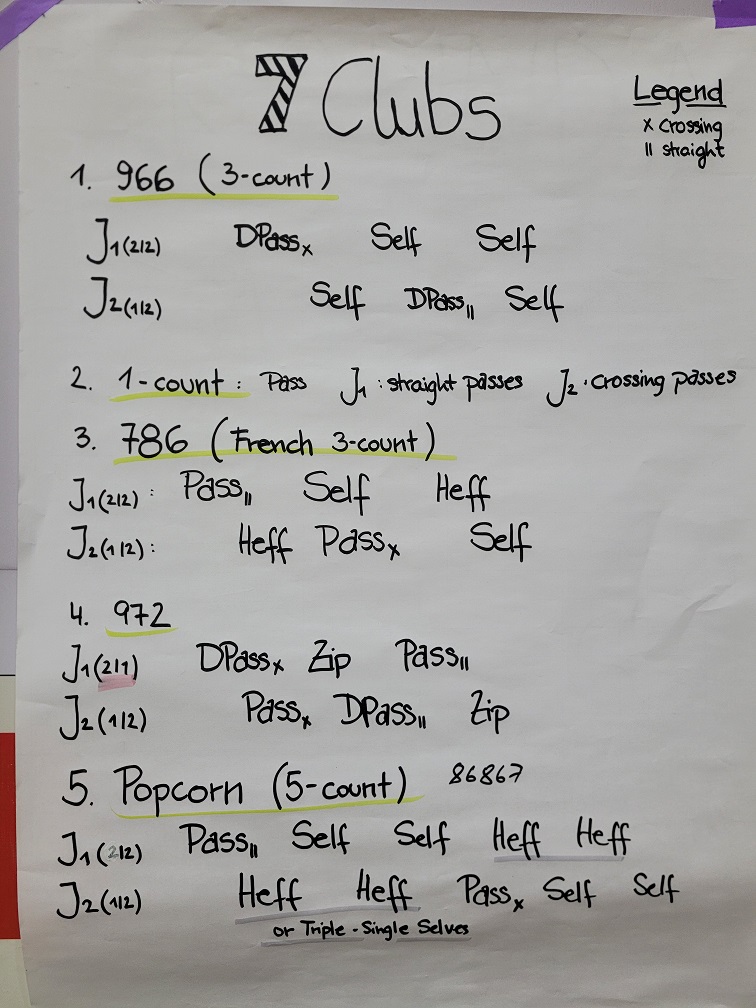 7 Clubs
Legend
x crossing
॥ straight
1. 966 (3-count)
J1(2|2) DPassx Self Self
J2(1|2) Self DPass॥ Self
2. 1-count: Pass J1: straight passes J2: crossing passes
3. 786 (French 3-count)
J1(2|2): Pass॥ Self Heff
J2(1|2): Heff Passx Self
4. 972
J1(2|1) DPassx Zip Pass॥
J2(1|2) Passx DPass॥ Zip
5. Popcorn (5-count) 86867
J1(2|2) Pass॥ Self Self Heff Heff
J2(1|2) Heff Heff Passx Self Self
or Triple-Single Selves